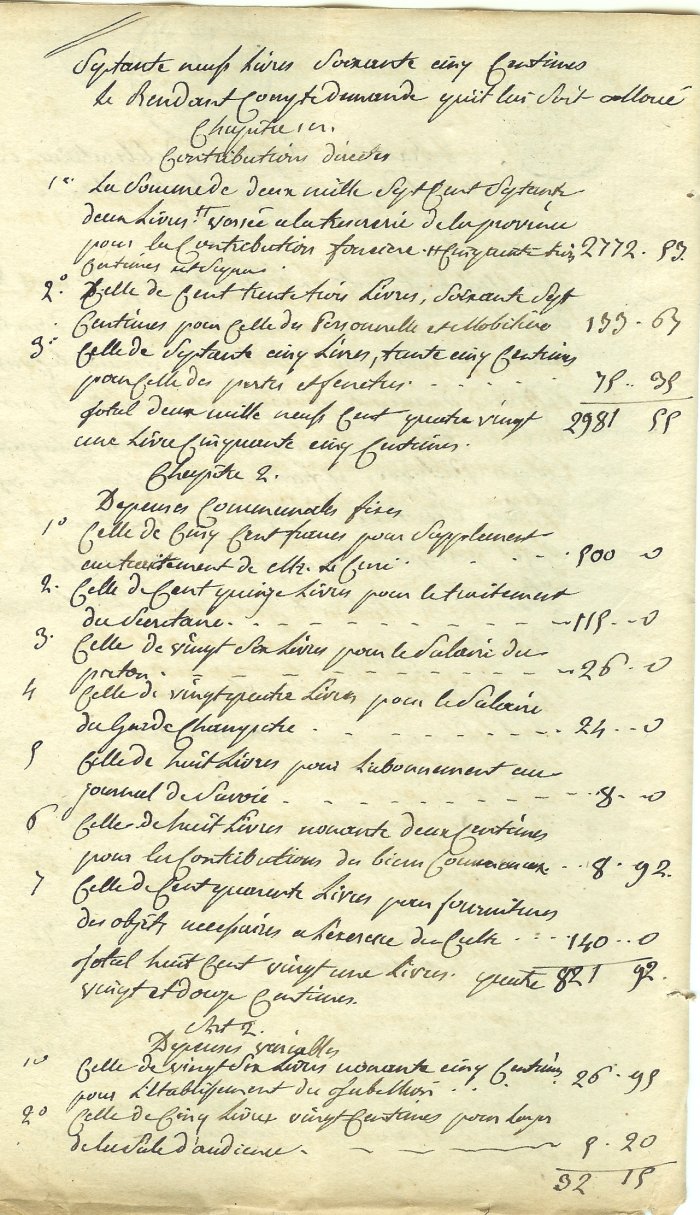 Septante neuf Livres Soixante cinq Centimes
Le Rendant Compte demande qu'il lui Soit alloué
Chapitre 1er.
Contributions directes
1° La Somme de deux mille Sept Cent Septante
deux Livres †† versée a la tresorerie de la province
pour la Contribution fonciere. †† Cinquante trois 2772 . 53
Centimes
2° Celle de Cent trente trois Livres, Soixante Sept
Centimes pour Celle du Personnelle et Mobiliere 133 . 67
3° Celle de Septante cinq Livres, trente cinq Centimes
pour Celle des portes et fenetres. - - - 75 .. 35
total deux mille neuf Cent quatre vingt 2981 55
une Livre Cinquante cinq Centimes.
Chapitre 2.
Depenses Communales fixes
1° Celle de Cinq Cent francs pour Supplement
au traitement de Mr. Le Curé. - - - 500 0
2. Celle de Cent quinze Livres pour le traitement
du Secretaire. - - - 115 .. 0
3. Celle de vingt Six Livres pour le Salaire du
pieton. - - - 26 .. 0
4 Celle de vingt quatre Livres pour le Salaire
du Garde Champetre. - - - 24 .. 0
5 Celle de huit Livres pour L'abonnement au
journal de Savoie. - - - 8 .. 0
6 Celle de huit Livres nonante deux Centimes
pour les Contributions des biens Communaux. - - 8 . 92.
7 Celle de Cent quarante Livres pour fournitures
des objets necessaires a L'exercice du Culte - - - 140 .. 0
total huit Cent vingt une Livres. quatre 821 92.
vingt et douze Centimes.
Art 2.
Depenses variables
1° Celle de vingt Six Livres nonante cinq Centimes 26 . 95
pour L'Etablissement du
2° Celle de Cinq Livres vingt Centimes pour Loyer
de la Sale d'audience. - - - 5 . 20
32 15